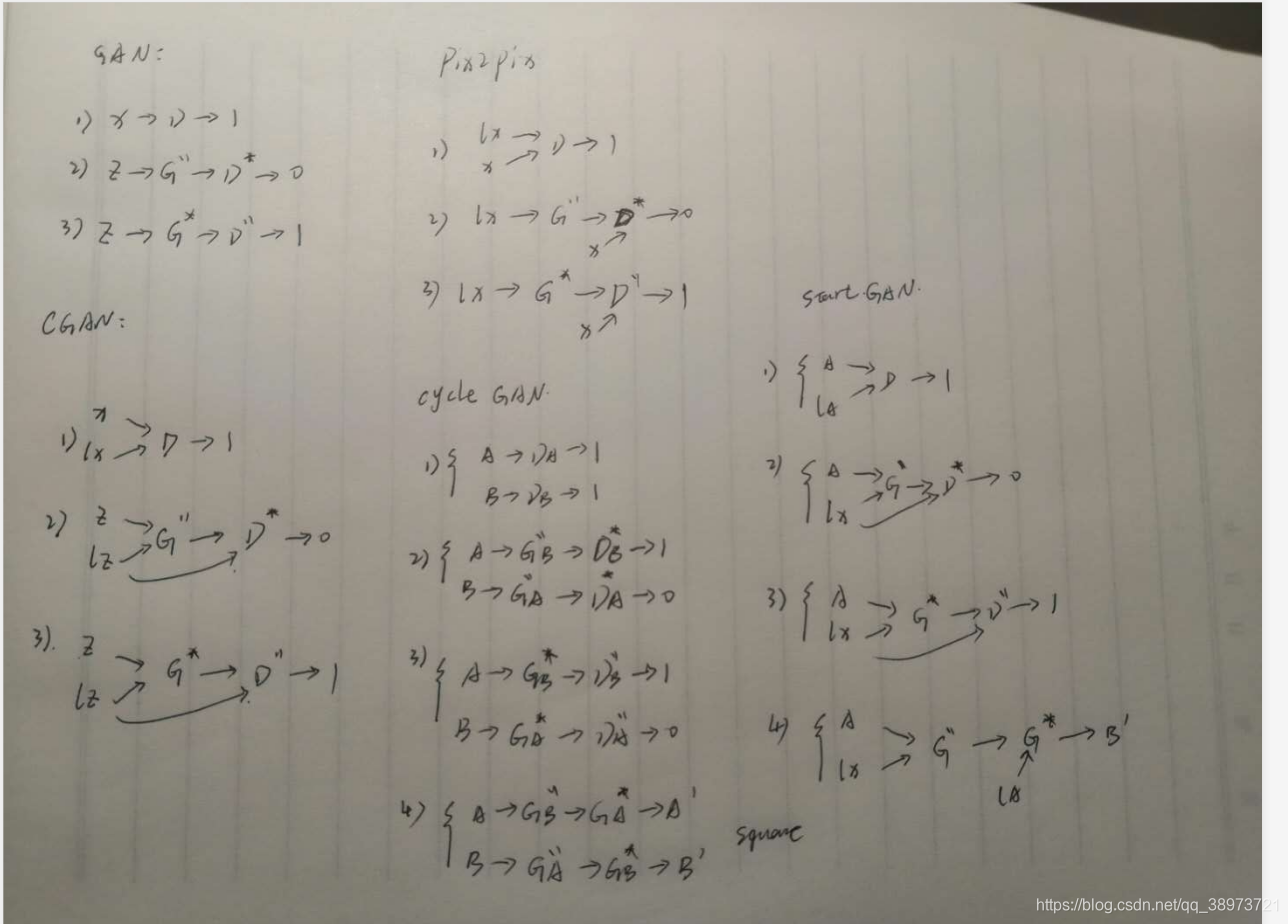 GAN:
1) x → D → 1
2) Z → G" → D* → 0
3) Z → G* → D" → 1
CGAN:
x
1) lx → D → 1
2) Z
lZ → G" → D* → 0
3). Z
lZ → G* → D" → 1
Pix2pix
1) lx
x → D → 1
2) lx → G" → D* → 0
x
3) lx → G* → D" → 1
x
cycle GAN.
1) { A → DA → 1
B → DB → 1
2) { A → GB" → DB* → 1
B → GA" → DA* → 0
3) { A → GB* → DB" → 1
B → GA* → DA" → 0
4) { A → GB" → GA* → A'
B → GA" → GB* → B'
start GAN.
1) { A
lA → D → 1
2) { A
lx → G" → D* → 0
3) { A
lx → G* → D" → 1
4) { A
lx → G" → G* → B'
lA
square
https://blog.csdn.net/qq_38973721